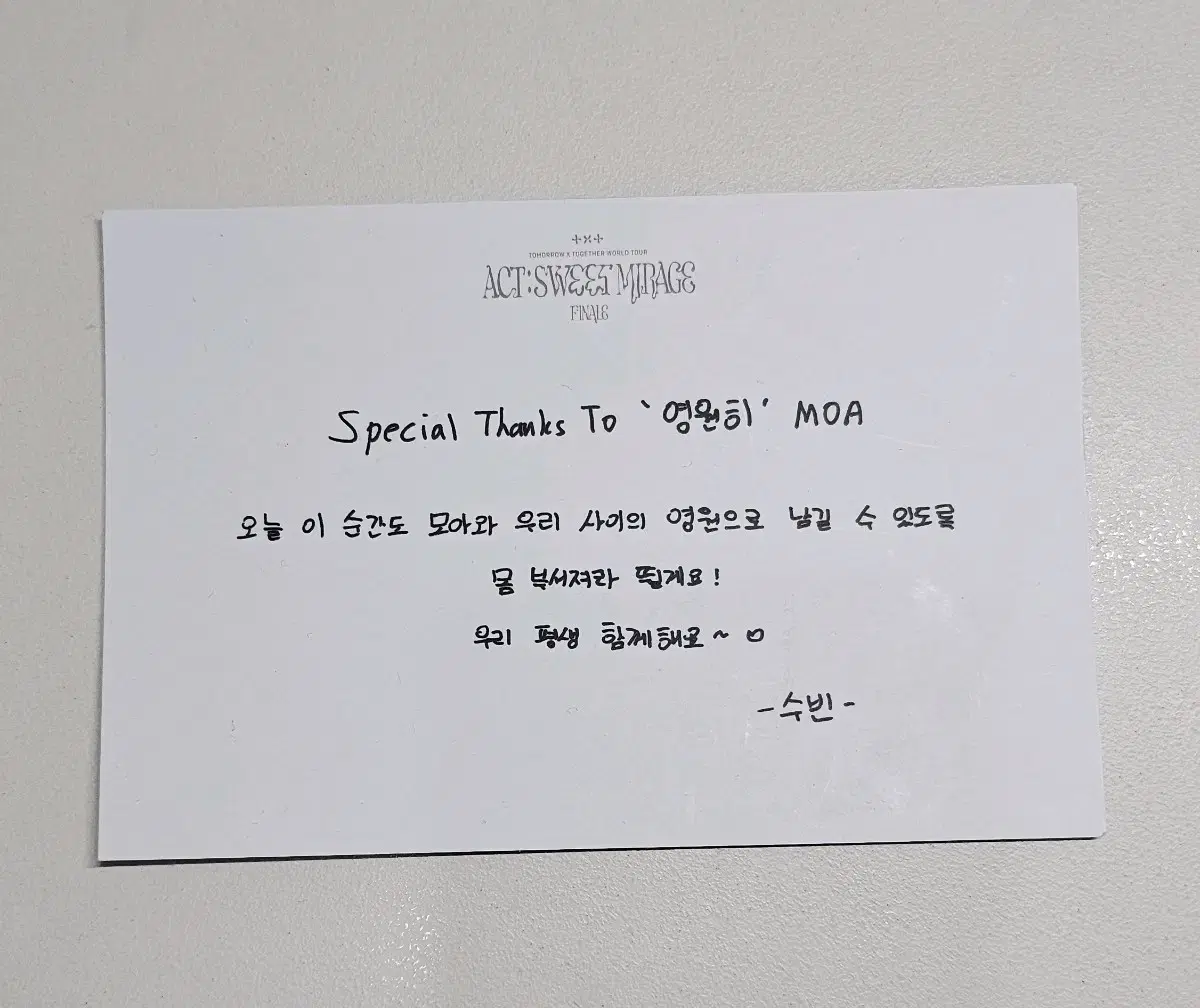 +x+
TOMORROW X TOGETHER WORLD TOUR
ACT:SWEET MIRAGE
FINALE
Special Thanks To '영원히' MOA
오늘 이 순간도 모아와 우리 사이의 영원으로 남길 수 있도록
몸 부서져라 뛸게요!
우리 평생 함께해요~ ♡
-수빈-